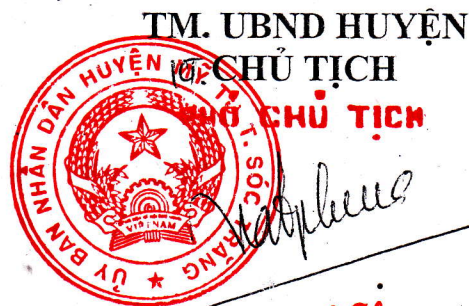 TM. UBND HUYỆN
KT. CHỦ TỊCH
PHÓ CHỦ TỊCH
ỦY BAN NHÂN DÂN HUYỆN MỸ TÚ T. SÓC TRĂNG
VIỆT NAM